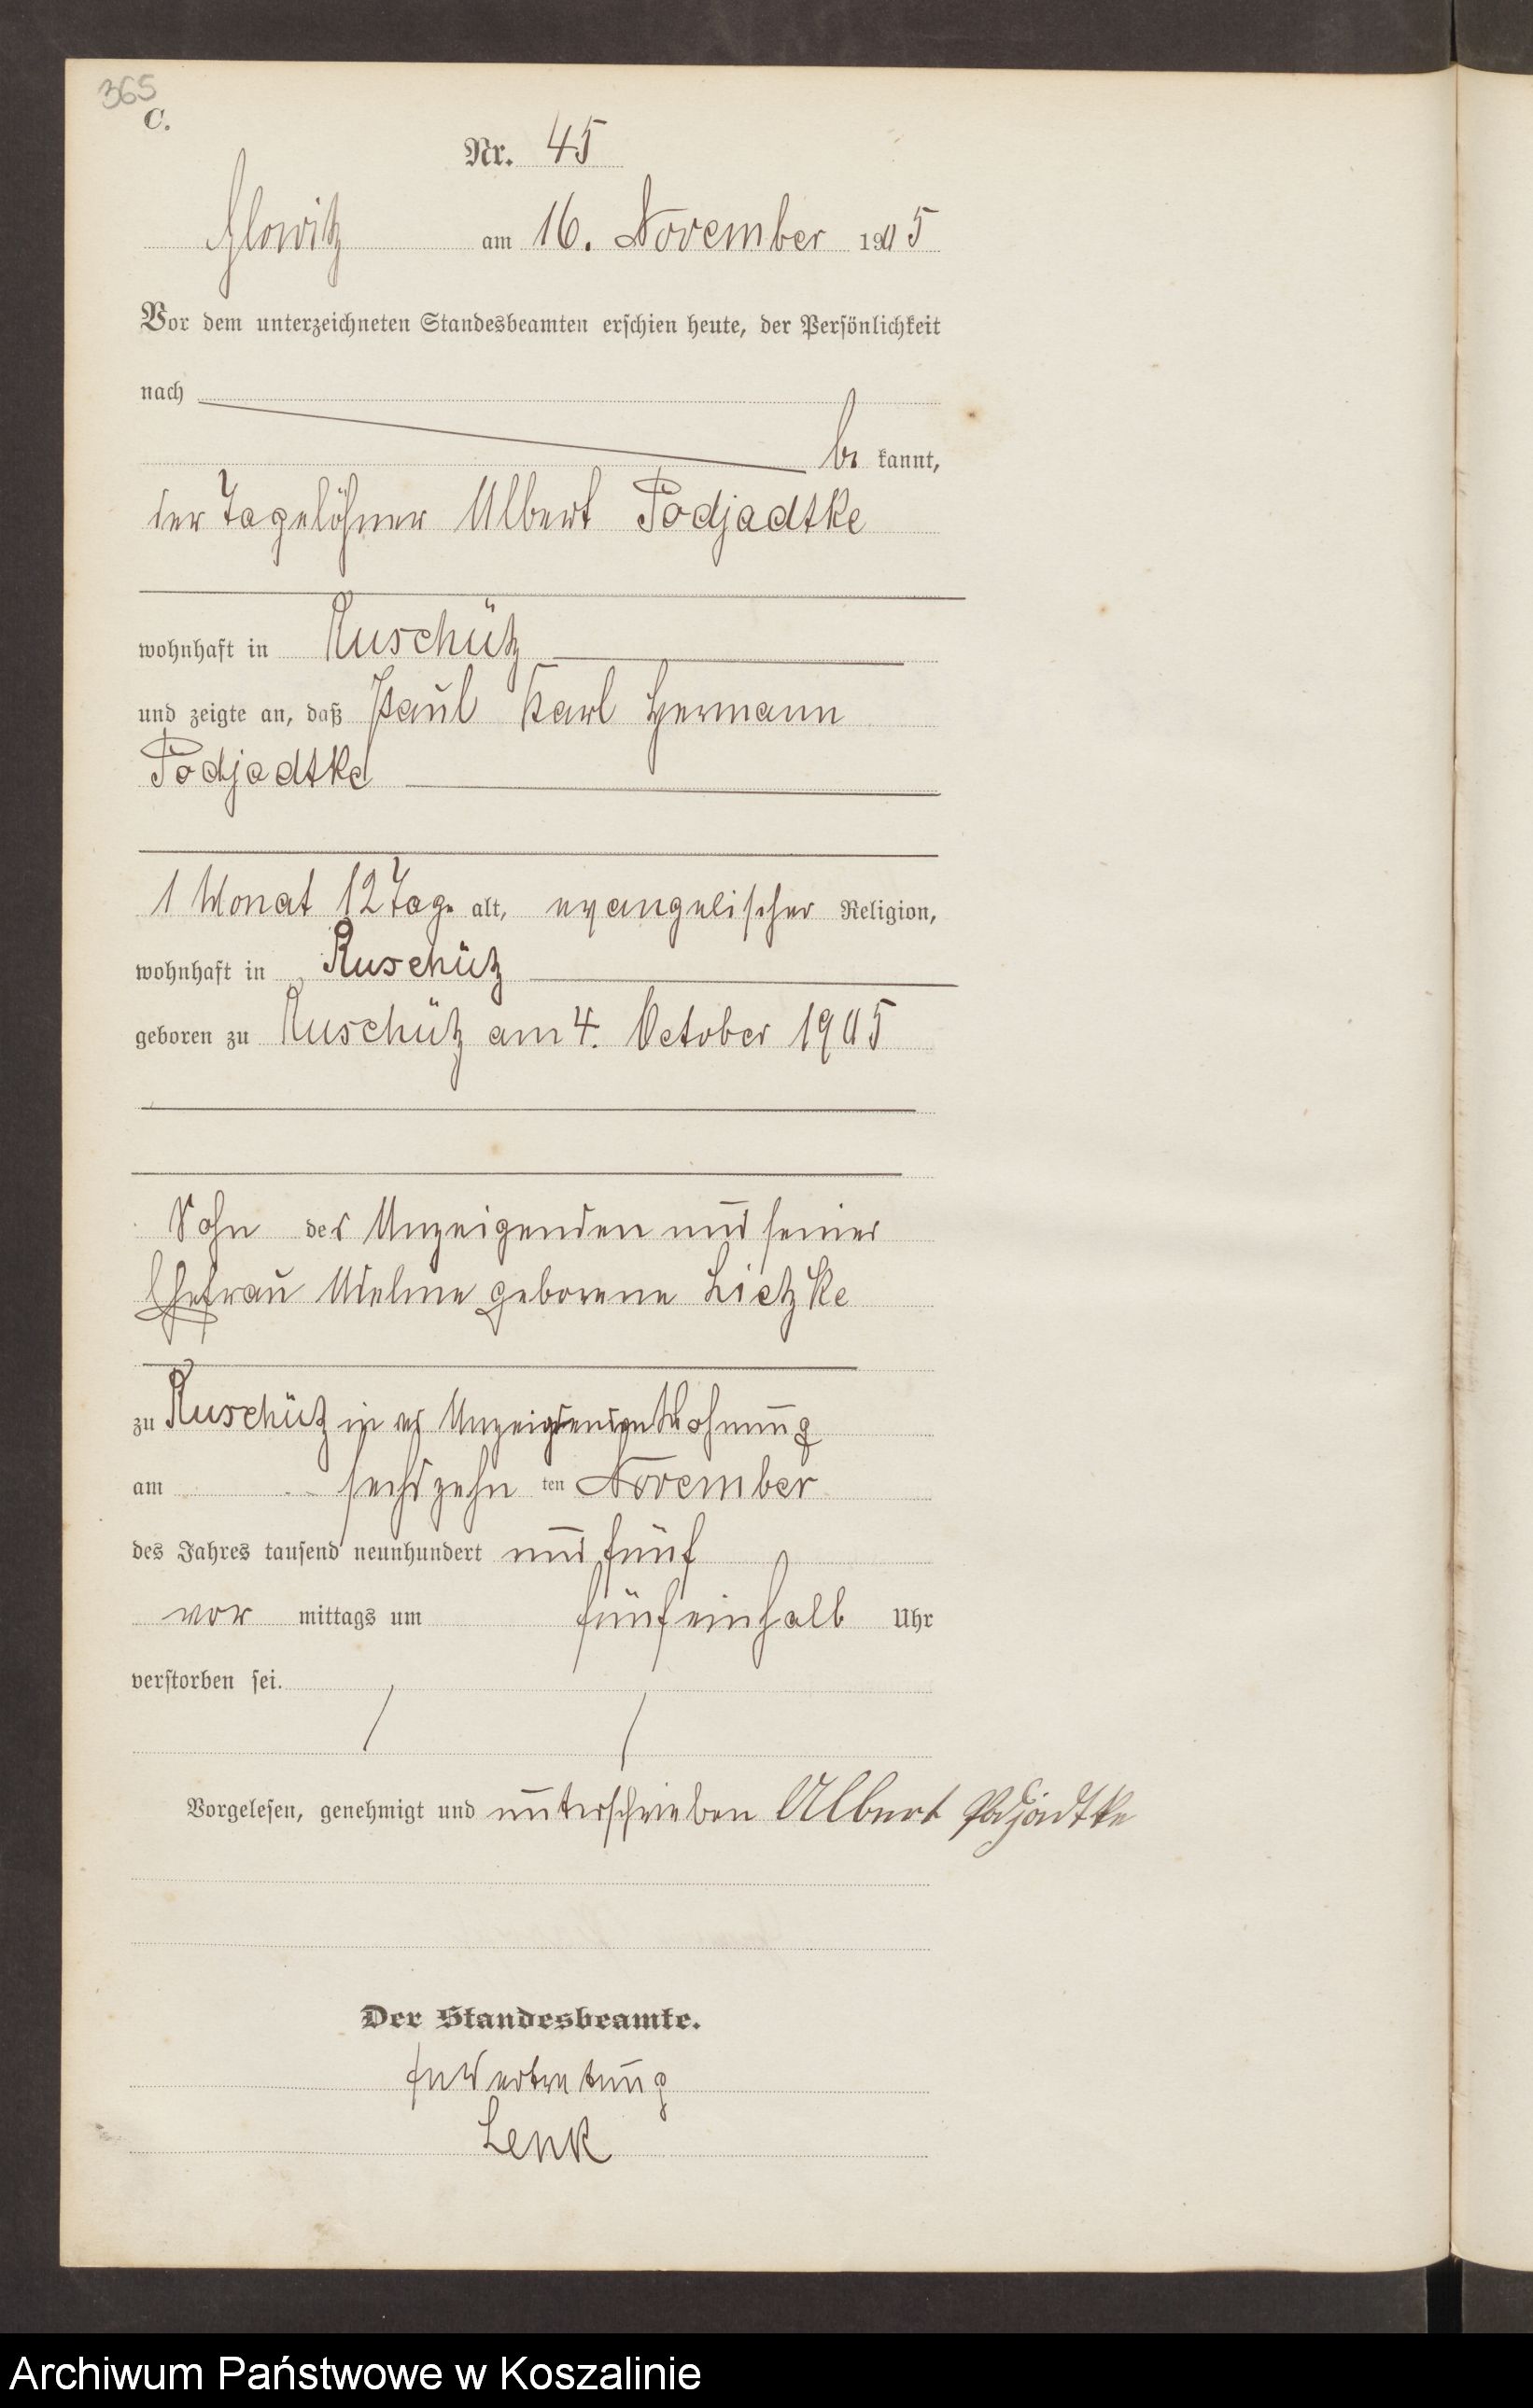 365
C.
Nr. 45
Glowitz am 16. November 1905
Vor dem unterzeichneten Standesbeamten erschien heute, der Persönlichkeit
nach
be kannt,
der Tagelöhner Albert Podjadtke
wohnhaft in Ruschütz
und zeigte an, daß Paul Karl Hermann
Podjadtke
1 Monat 12 Tage alt, evangelischer Religion,
wohnhaft in Ruschütz
geboren zu Ruschütz am 4. October 1905
Sohn des Anzeigenden und seiner
Ehefrau geborene Lietzke
zu Ruschütz in des Anzeigenden Wohnung
am sechszehn ten November
des Jahres tausend neunhundert und fünf
vor mittags um fünfeinhalb Uhr
verstorben sei.
Vorgelesen, genehmigt und unterschrieben Albert Podjadtke
Der Standesbeamte.
In Vertretung
Lenk
Archiwum Państwowe w Koszalinie